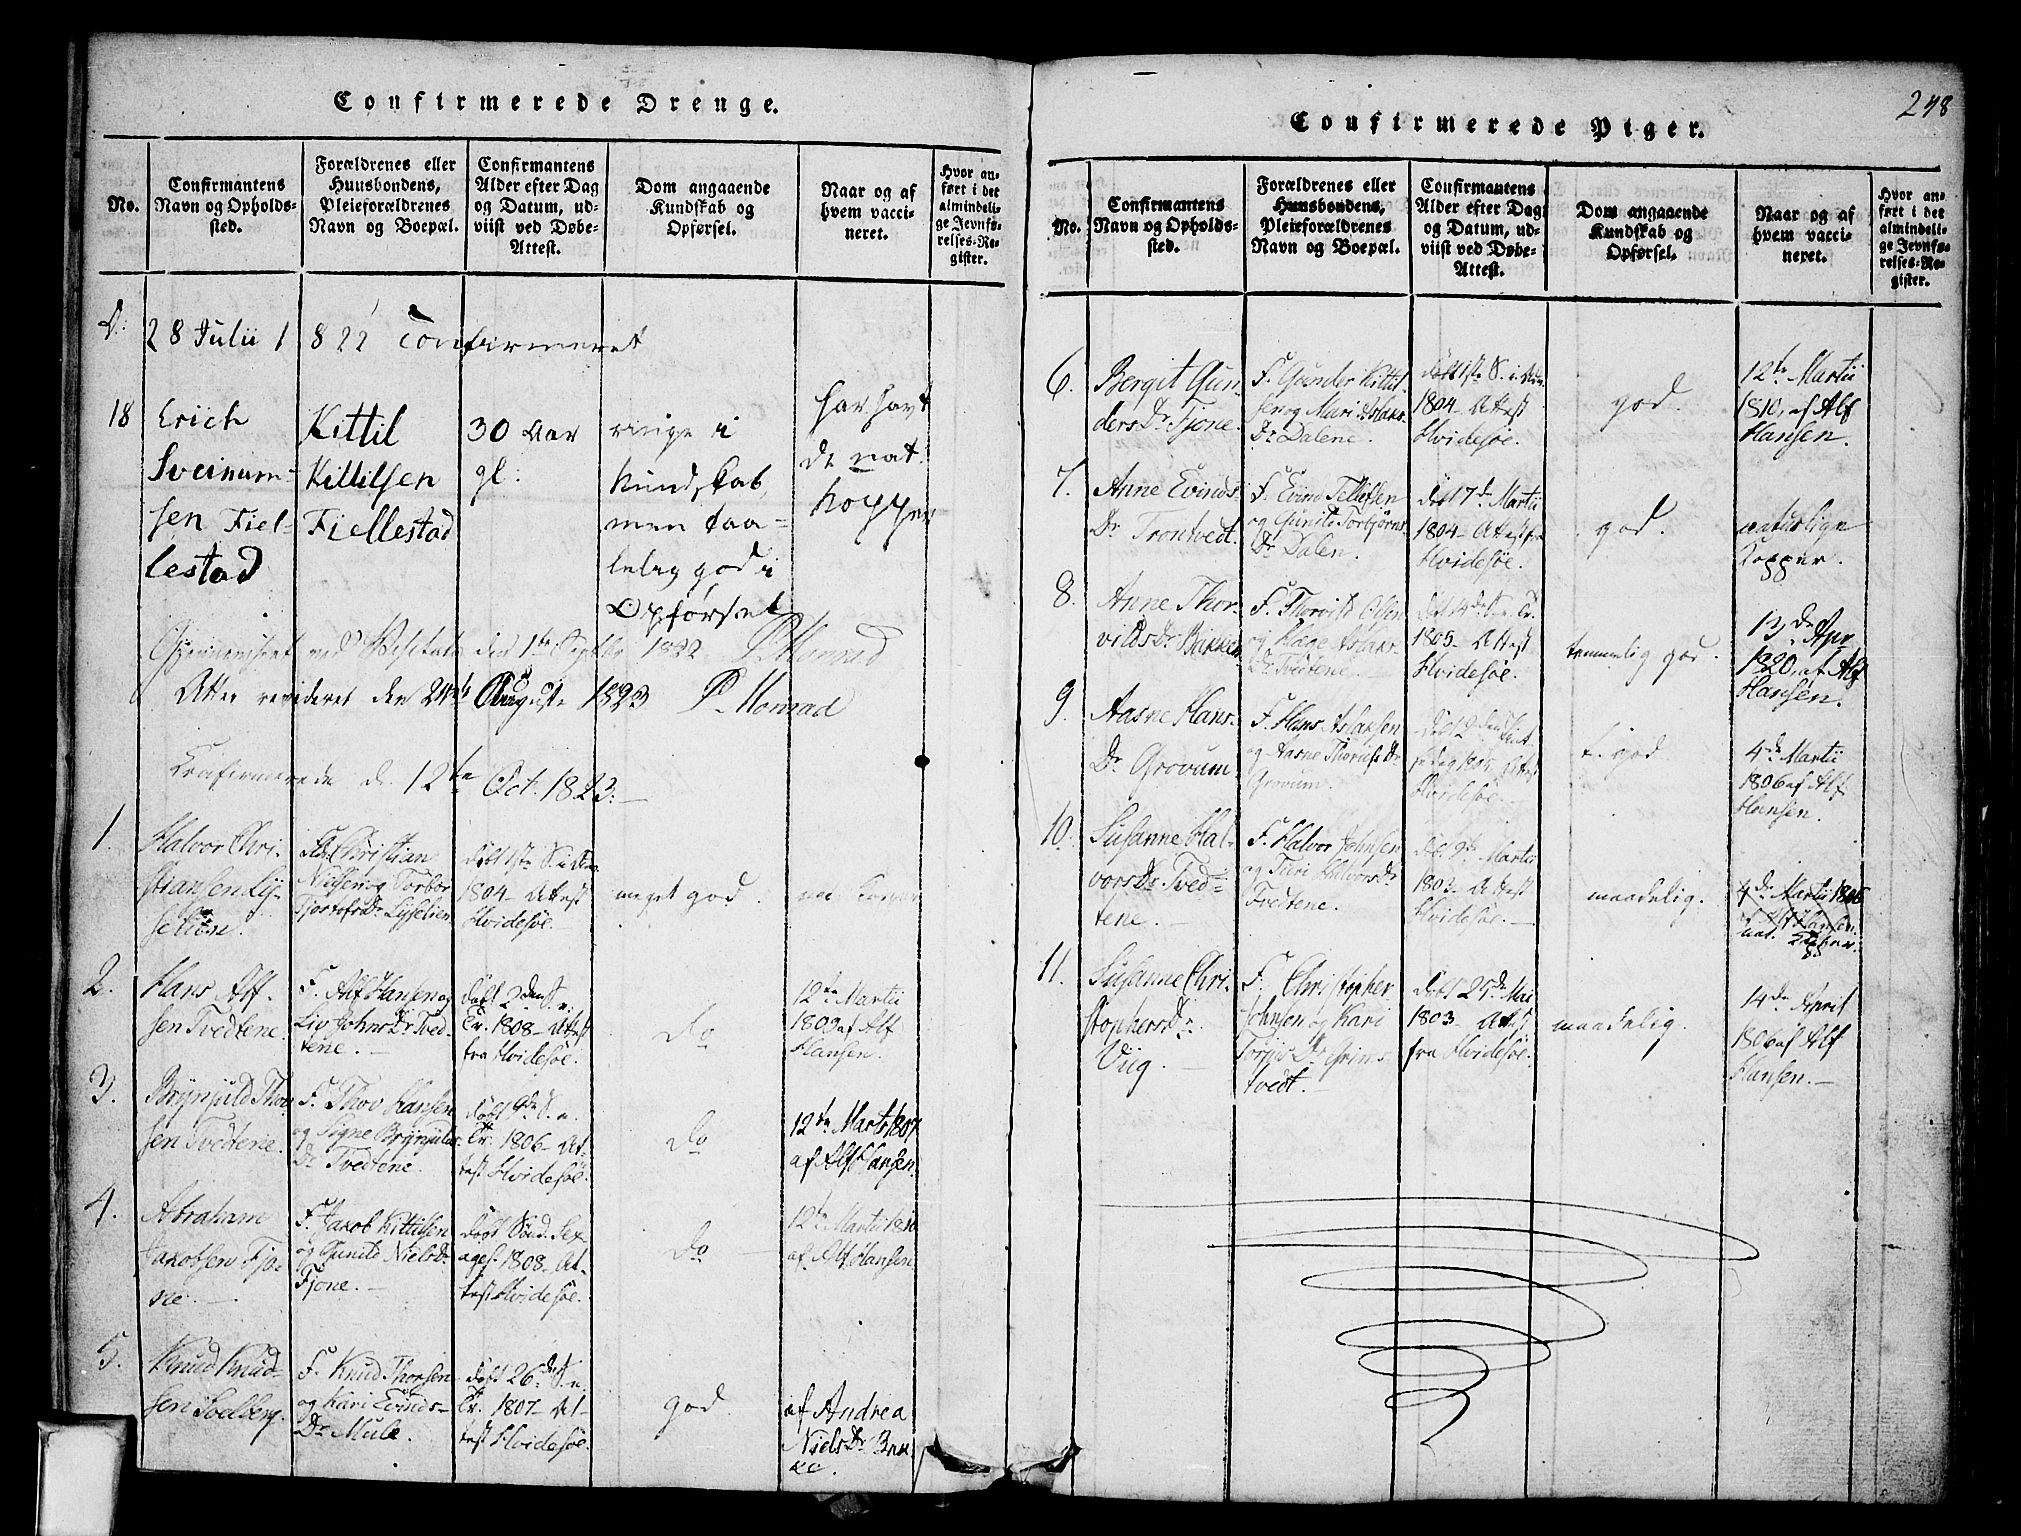 Confirmerede Drenge.
No.
Confirmantens
Navn og Opholds-
sted.
Forældrenes eller
Huusbondens,
Pleieforældrenes
Navn og Boepæl.
Confirmantens
Alder efter Dag
og Datum, ud-
viist ved Døbe-
Attest.
Dom angaaende
Kundskab og
Opførsel.
Naar og af
hvem vacci-
neret.
Hvor an-
ført i det
almindeli-
ge Jevnfø-
relses-Re-
gister.
D:
28 Julii 1822 Confirmeret
18
Erich
Sveinum-
sen Fiel-
lestad
Kittil
Kittilsen
Fiellestad
30 Aar
gl:
ringe i
Kundskab,
men taa-
lelig god i
Opførsel
har havt
de nat:
kopper
Gjennemseet ved Visitats den 1te Septbr 1822 P Monrad
Atter revideret den 24de August 1823 P. Monrad
Confirmerede d. 12te Oct. 1823:
1.
Halvor Chri-
stiansen Lys-
F. Christian
Nielsen og Torbor
1804 - Attest
Hvidesøe.
meget god.
2.
Hans Alf-
sen Tvedtene.
F. Alf Hansen og
Liv Johns Dr Tved-
tene.
døbt 2den S. e.
Tr. 1808 - Attest
fra Hvidesøe.
Do
12te Martii
1809 af Alf
Hansen.
3.
Brynjuld Thov
sen Tvedtene.
F. Thov Hansen
og Signe Brynjulds
Dr Tvedtene.
døbt 9de S. e.
Tr. 1806 - At-
test Hvidesøe.
Do
12te Marts 1807
af Alf Hansen.
4.
Abraham
Jacobsen Fjo-
ne.
F. Jacob Kittilsen
og Gunild Niels Dr
Fjone.
døbt Sønd. Sex
ages. 1808 - At-
test Hvidesøe.
Do
12te Martii 1810
af Alf Hansen
5.
Knud Knud-
sen Soelberg.
F. Knud Thorsen
og Kari Evinds-
Dr Mule.
døbt 26de S. e.
Tr. 1807 - At-
test Hvidesøe.
god.
af Andrea
Niels Dr Bak
ke.
248
Confirmerede Piger.
No.
Confirmantens
Navn og Opholds-
sted.
Forældrenes eller
Huusbondens,
Pleieforældrenes
Navn og Boepæl.
Confirmantens
Alder efter Dag
og Datum, ud-
viist ved Døbe-
Attest.
Dom angaaende
Kundskab og
Opførsel.
Naar og af
hvem vacci-
neret.
Hvor an-
ført i det
almindeli-
ge Jevnfø-
relses-Re-
gister.
6.
Bergit Gun
ders Dr Fjone.
F. Gunder Kittil
sen og Mari Aslaks
Dr Dalene.
1804 - Attest
Hvidesøe.
god.
12te Martii
1810, af Alf
Hansen.
7.
Anne Evinds
Dr Trontvedt.
F. Evind Tellefsen
og Gunild Torbjørns
Dr Dalen.
døbt 7de Martii
1804 - Attest fra
Hvidesøe.
god.
naturlige
Kopper.
8.
Anne Thor
vilds Dr Bakken
F. Thorvild Olsen
og Aslaks
Dr Tvedtene.
døbt 14de S. e. Tr.
1805 - Attest
Hvidesøe.
temmelig god.
13de Apr
1820, af Alf
Hansen.
9.
Aasne Hans
Dr Grovum.
F. Hans Aslaksen
og Aasne Dr
Grovum.
Hvidesøe.
t. god
4de Martii
1806 af Alf
Hansen.
10.
Susanne Hal-
vors Dr Tved-
tene.
F. Halvor Johnsen
og Turi Halvors Dr
Tvedtene.
døbt 9de Martii
1803 - Attest
Hvidesøe.
maadelig.
4de Martii 1806
af Alf Hansen.
nat. Kopper.
11.
Susanne Chri-
stophers Dr
Viig.
F. Christopher
Johnsen og Kari
Torjus Dr Grims
tvedt.
døbt 25de Mai
1803 - Attest
fra Hvidesøe.
maadelig.
14de April
1806 af Alf
Hansen.